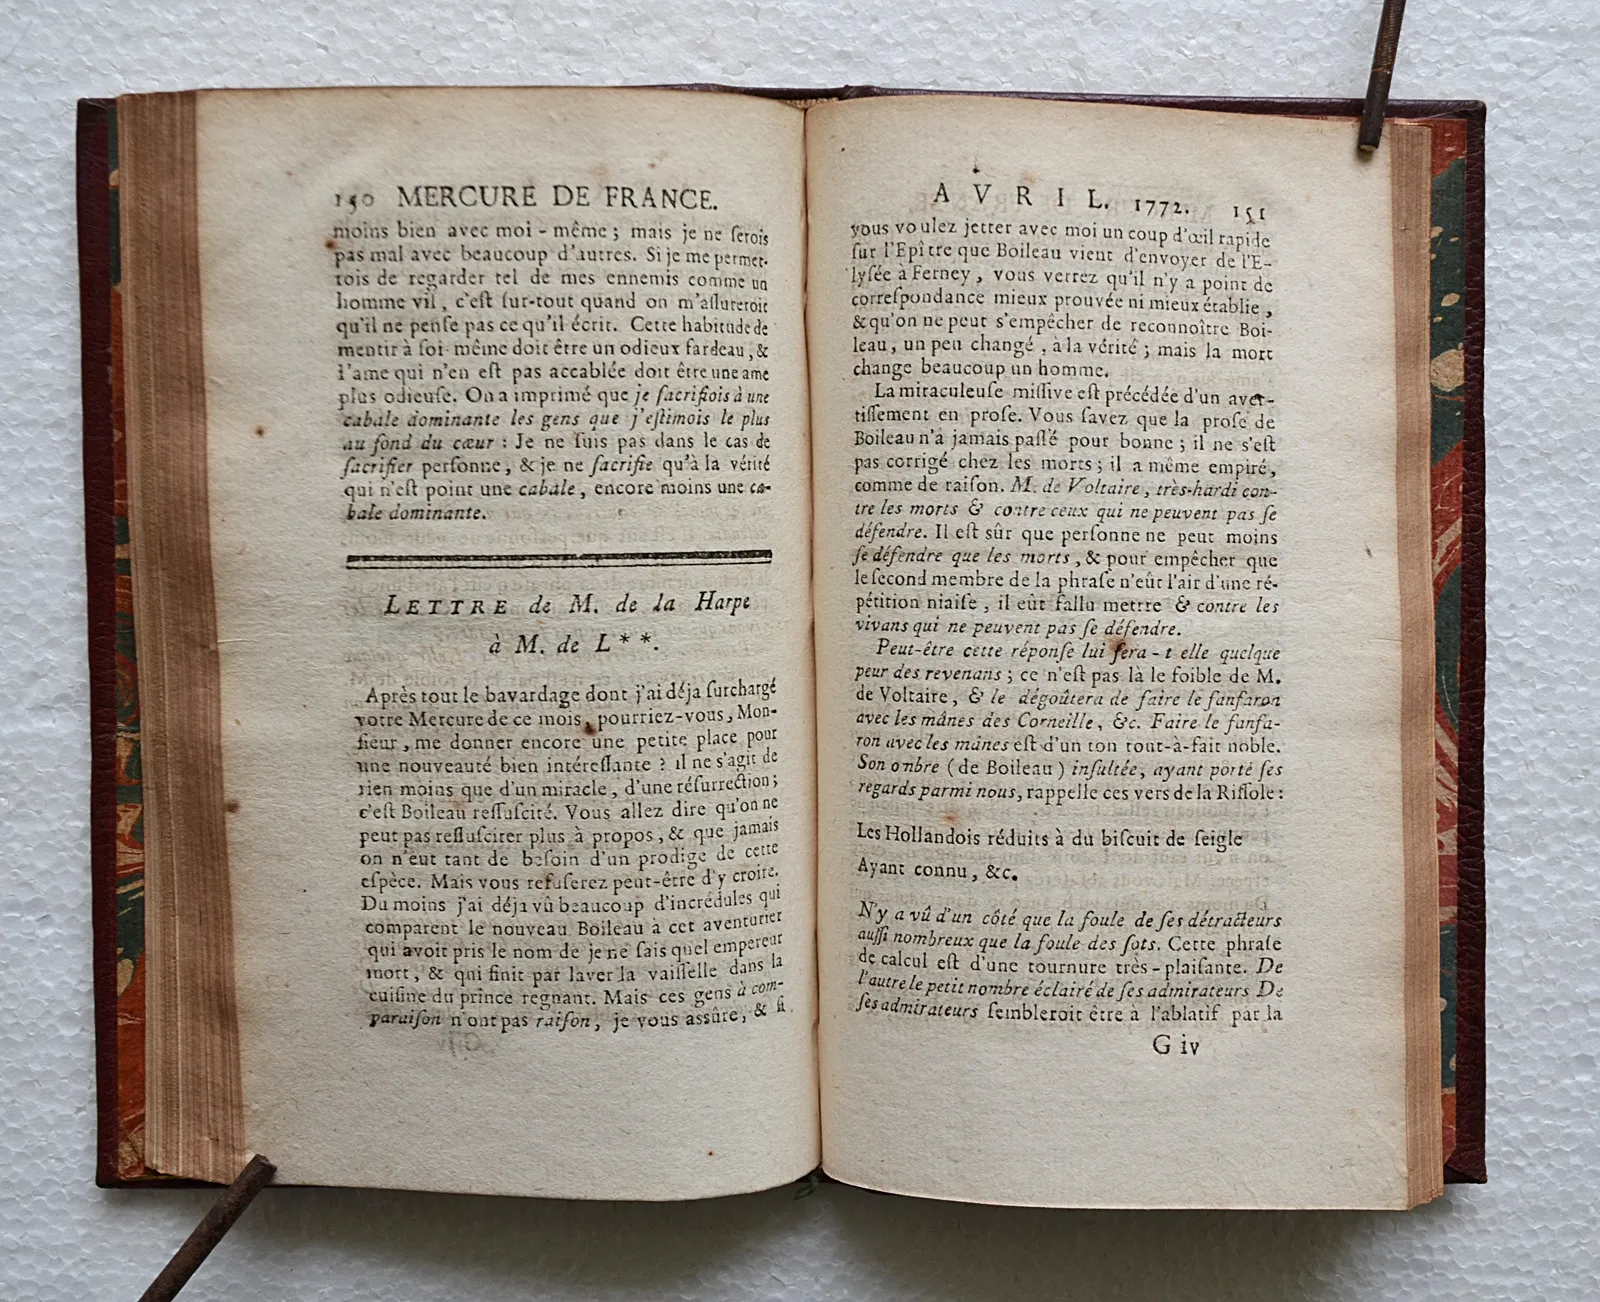 150 MERCURE DE FRANCE.
moins bien avec moi-même; mais je ne ſerois
pas mal avec beaucoup d'autres. Si je me permet-
tois de regarder tel de mes ennemis comme un
homme vil, c'eſt ſur-tout quand on m'aſſureroit
qu'il ne penſe pas ce qu'il écrit. Cette habitude de
mentir à ſoi-même doit être un odieux fardeau, &
l'ame qui n'en eſt pas accablée doit être une ame
plus odieuſe. On a imprimé que je ſacrifiois à une
cabale dominante les gens que j'eſtimois le plus
au fond du cœur : Je ne ſuis pas dans le cas de
ſacrifier perſonne, & je ne ſacrifie qu'à la vérité
qui n'eſt point une cabale, encore moins une ca-
bale dominante.
LETTRE de M. de la Harpe
à M. de L**.
Après tout le bavardage dont j'ai déja ſurchargé
votre Mercure de ce mois, pourriez-vous, Mon-
ſieur, me donner encore une petite place pour
une nouveauté bien intéreſſante ? il ne s'agit de
rien moins que d'un miracle, d'une réſurrection;
c'eſt Boileau reſſuſcité. Vous allez dire qu'on ne
peut pas reſſuſciter plus à propos, & que jamais
on n'eut tant de beſoin d'un prodige de cette
eſpèce. Mais vous refuſerez peut-être d'y croire.
Du moins j'ai déja vû beaucoup d'incrédules qui
comparent le nouveau Boileau à cet aventurier
qui avoit pris le nom de je ne ſais quel empereur
mort, & qui finit par laver la vaiſſelle dans la
cuiſine du prince regnant. Mais ces gens à com-
paraiſon n'ont pas raiſon, je vous assûre, & ſi
AVRIL. 1772. 151
vous voulez jetter avec moi un coup d'œil rapide
ſur l'Epître que Boileau vient d'envoyer de l'E-
lyſée à Ferney, vous verrez qu'il n'y a point de
correſpondance mieux prouvée ni mieux établie,
& qu'on ne peut s'empêcher de reconnoître Boi-
leau, un peu changé, à la vérité; mais la mort
change beaucoup un homme.
La miraculeuſe miſſive eſt précédée d'un aver-
tiſſement en proſe. Vous ſavez que la proſe de
Boileau n'a jamais paſſé pour bonne; il ne s'eſt
pas corrigé chez les morts; il a même empiré,
comme de raiſon. M. de Voltaire, très-hardi con-
tre les morts & contre ceux qui ne peuvent pas ſe
défendre. Il eſt sûr que perſonne ne peut moins
ſe défendre que les morts, & pour empêcher que
le ſecond membre de la phraſe n'eût l'air d'une ré-
pétition niaiſe, il eût fallu mettre & contre les
vivans qui ne peuvent pas ſe défendre.
Peut-être cette réponſe lui fera-t elle quelque
peur des revenans; ce n'eſt pas là le foible de M.
de Voltaire, & le dégoûtera de faire le fanfaron
avec les mânes des Corneille, &c. Faire le fanfa-
ron avec les mânes eſt d'un ton tout-à-fait noble.
Son onbre (de Boileau) inſultée, ayant porté ſes
regards parmi nous, rappelle ces vers de la Riſſole :
Les Hollandois réduits à du biſcuit de ſeigle
Ayant connu, &c.
N'y a vû d'un côté que la foule de ſes détracteurs
auſſi nombreux que la foule des ſots. Cette phraſe
de calcul eſt d'une tournure très-plaiſante. De
l'autre le petit nombre éclairé de ſes admirateurs De
ſes admirateurs ſembleroit être à l'ablatif par la
G iv